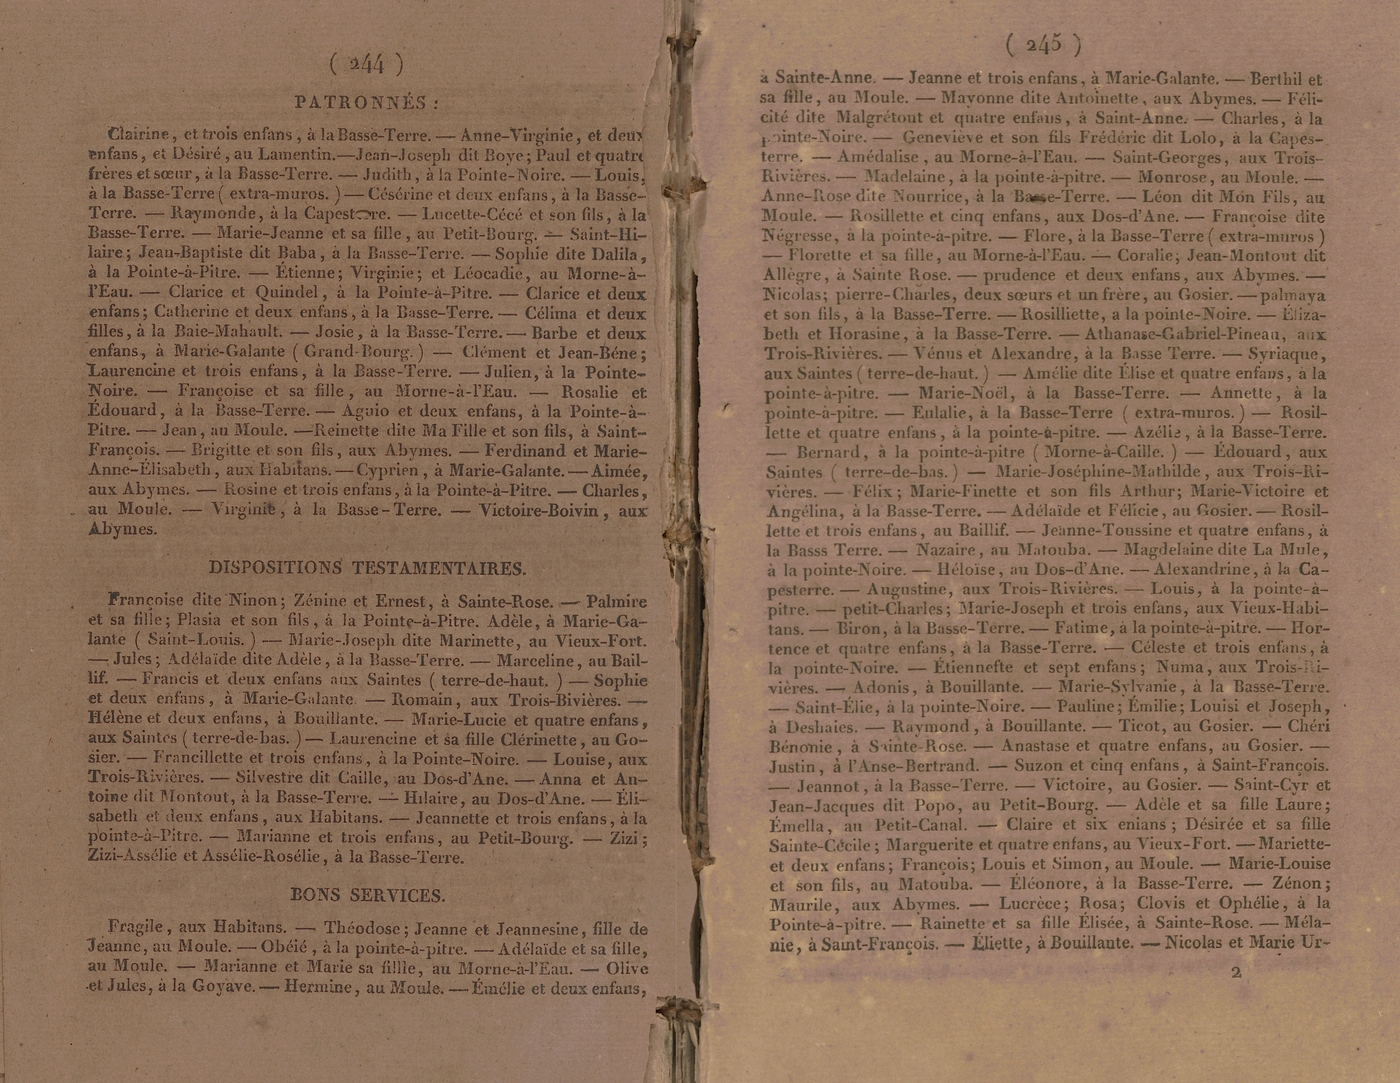 ( 244 )
PATRONNÉS :
Clairine, et trois enfans, à la Basse-Terre. — Anne-Virginie, et deux
enfans, et Désiré, au Lamentin.—Jean-Joseph dit Boye; Paul et quatre
frères et sœur, à la Basse-Terre. — Judith, à la Pointe-Noire. — Louis,
à la Basse-Terre ( extra-muros. ) — Césérine et deux enfans, à la Basse-
Terre. — Raymonde, à la Capesterre. — Lucette-Cécé et son fils, à la
Basse-Terre. — Marie-Jeanne et sa fille, au Petit-Bourg. — Saint-Hi-
laire; Jean-Baptiste dit Baba, à la Basse-Terre. — Sophie dite Dalila,
à la Pointe-à-Pitre. — Étienne; Virginie; et Léocadie, au Morne-à-
l'Eau. — Clarice et Quindel, à la Pointe-à-Pitre. — Clarice et deux
enfans; Catherine et deux enfans, à la Basse-Terre. — Célima et deux
filles, à la Baie-Mahault. — Josie, à la Basse-Terre. — Barbe et deux
enfans, à Marie-Galante ( Grand-Bourg. ) — Clément et Jean-Béne;
Laurencine et trois enfans, à la Basse-Terre. — Julien, à la Pointe-
Noire. — Françoise et sa fille, au Morne-à-l'Eau. — Rosalie et
Édouard, à la Basse-Terre. — Aguio et deux enfans, à la Pointe-à-
Pitre. — Jean, au Moule. —Reinette dite Ma Fille et son fils, à Saint-
François. — Brigitte et son fils, aux Abymes. — Ferdinand et Marie-
Anne-Élisabeth, aux Habitans. — Cyprien, à Marie-Galante. — Aimée,
aux Abymes. — Rosine et trois enfans, à la Pointe-à-Pitre. — Charles,
au Moule. — Virginie, à la Basse-Terre. — Victoire-Boivin, aux
Abymes.
DISPOSITIONS TESTAMENTAIRES.
Françoise dite Ninon; Zénine et Ernest, à Sainte-Rose. — Palmire
et sa fille; Plasia et son fils, à la Pointe-à-Pitre. Adèle, à Marie-Ga-
lante ( Saint-Louis. ) — Marie-Joseph dite Marinette, au Vieux-Fort.
— Jules; Adélaïde dite Adèle, à la Basse-Terre. — Marceline, au Bail-
lif. — Francis et deux enfans aux Saintes ( terre-de-haut. ) — Sophie
et deux enfans, à Marie-Galante. — Romain, aux Trois-Bivières. —
Hélène et deux enfans, à Bouillante. — Marie-Lucie et quatre enfans,
aux Saintes ( terre-de-bas. ) — Laurencine et sa fille Clérinette, au Go-
sier. — Francillette et trois enfans, à la Pointe-Noire. — Louise, aux
Trois-Rivières. — Silvestre dit Caille, au Dos-d'Ane. — Anna et An-
toine dit Montout, à la Basse-Terre. — Hilaire, au Dos-d'Ane. — Éli-
sabeth et deux enfans, aux Habitans. — Jeannette et trois enfans, à la
pointe-à-Pitre. — Marianne et trois enfans, au Petit-Bourg. — Zizi;
Zizi-Assélie et Assélie-Rosélie, à la Basse-Terre.
BONS SERVICES.
Fragile, aux Habitans. — Théodose; Jeanne et Jeannesine, fille de
Jeanne, au Moule. — Obéié, à la pointe-à-pitre. — Adélaïde et sa fille,
au Moule. — Marianne et Marie sa fillle, au Morne-à-l'Eau. — Olive
et Jules, à la Goyave. — Hermine, au Moule. — Émélie et deux enfans,
( 245 )
à Sainte-Anne. — Jeanne et trois enfans, à Marie-Galante. — Berthil et
sa fille, au Moule. — Mayonne dite Antoinette, aux Abymes. — Féli-
cité dite Malgrétout et quatre enfans, à Saint-Anne. — Charles, à la
pointe-Noire. — Geneviève et son fils Frédéric dit Lolo, à la Capes-
terre. — Amédalise, au Morne-à-l'Eau. — Saint-Georges, aux Trois-
Rivières. — Madelaine, à la pointe-à-pitre. — Monrose, au Moule. —
Anne-Rose dite Nourrice, à la Basse-Terre. — Léon dit Mon Fils, au
Moule. — Rosillette et cinq enfans, aux Dos-d'Ane. — Françoise dite
Négresse, à la pointe-à-pitre. — Flore, à la Basse-Terre ( extra-muros )
— Florette et sa fille, au Morne-à-l'Eau. — Coralie; Jean-Montout dit
Allègre, à Sainte Rose. — prudence et deux enfans, aux Abymes. —
Nicolas; pierre-Charles, deux sœurs et un frère, au Gosier. — palmaya
et son fils, à la Basse-Terre. — Rosilliette, a la pointe-Noire. — Éliza-
beth et Horasine, à la Basse-Terre. — Athanase-Gabriel-Pineau, aux
Trois-Rivières. — Vénus et Alexandre, à la Basse Terre. — Syriaque,
aux Saintes ( terre-de-haut. ) — Amélie dite Élise et quatre enfans, à la
pointe-à-pitre. — Marie-Noël, à la Basse-Terre. — Annette, à la
pointe-à-pitre. — Eulalie, à la Basse-Terre ( extra-muros. ) — Rosil-
lette et quatre enfans, à la pointe-à-pitre. — Azélie, à la Basse-Terre.
— Bernard, à la pointe-à-pitre ( Morne-à-Caille. ) — Édouard, aux
Saintes ( terre-de-bas. ) — Marie-Joséphine-Mathilde, aux Trois-Ri-
vières. — Félix; Marie-Finette et son fils Arthur; Marie-Victoire et
Angélina, à la Basse-Terre. — Adélaïde et Félicie, au Gosier. — Rosil-
lette et trois enfans, au Baillif. — Jeanne-Toussine et quatre enfans, à
la Basss Terre. — Nazaire, au Matouba. — Magdelaine dite La Mule,
à la pointe-Noire. — Héloïse, au Dos-d'Ane. — Alexandrine, à la Ca-
pesterre. — Augustine, aux Trois-Rivières. — Louis, à la pointe-à-
pitre. — petit-Charles; Marie-Joseph et trois enfans, aux Vieux-Habi-
tans. — Biron, à la Basse-Terre. — Fatime, à la pointe-à-pitre. — Hor-
tence et quatre enfans, à la Basse-Terre. — Céleste et trois enfans, à
la pointe-Noire. — Étiennefte et sept enfans; Numa, aux Trois-Ri-
vières. — Adonis, à Bouillante. — Marie-Sylvanie, à la Basse-Terre.
— Saint-Élie, à la pointe-Noire. — Pauline; Émilie; Louisi et Joseph,
à Deshaies. — Raymond, à Bouillante. — Ticot, au Gosier. — Chéri
Bénonie, à Sainte-Rose. — Anastase et quatre enfans, au Gosier. —
Justin, à l'Anse-Bertrand. — Suzon et cinq enfans, à Saint-François.
— Jeannot, à la Basse-Terre. — Victoire, au Gosier. — Saint-Cyr et
Jean-Jacques dit Popo, au Petit-Bourg. — Adèle et sa fille Laure;
Émella, au Petit-Canal. — Claire et six enians; Désirée et sa fille
Sainte-Cécile; Marguerite et quatre enfans, au Vieux-Fort. — Mariette-
et deux enfans; François; Louis et Simon, au Moule. — Marie-Louise
et son fils, au Matouba. — Éléonore, à la Basse-Terre. — Zénon;
Maurile, aux Abymes. — Lucrèce; Rosa; Clovis et Ophélie, à la
Pointe-à-pitre. — Rainette et sa fille Élisée, à Sainte-Rose. — Méla-
nie, à Saint-François. — Éliette, à Bouillante. — Nicolas et Marie Ur-
2